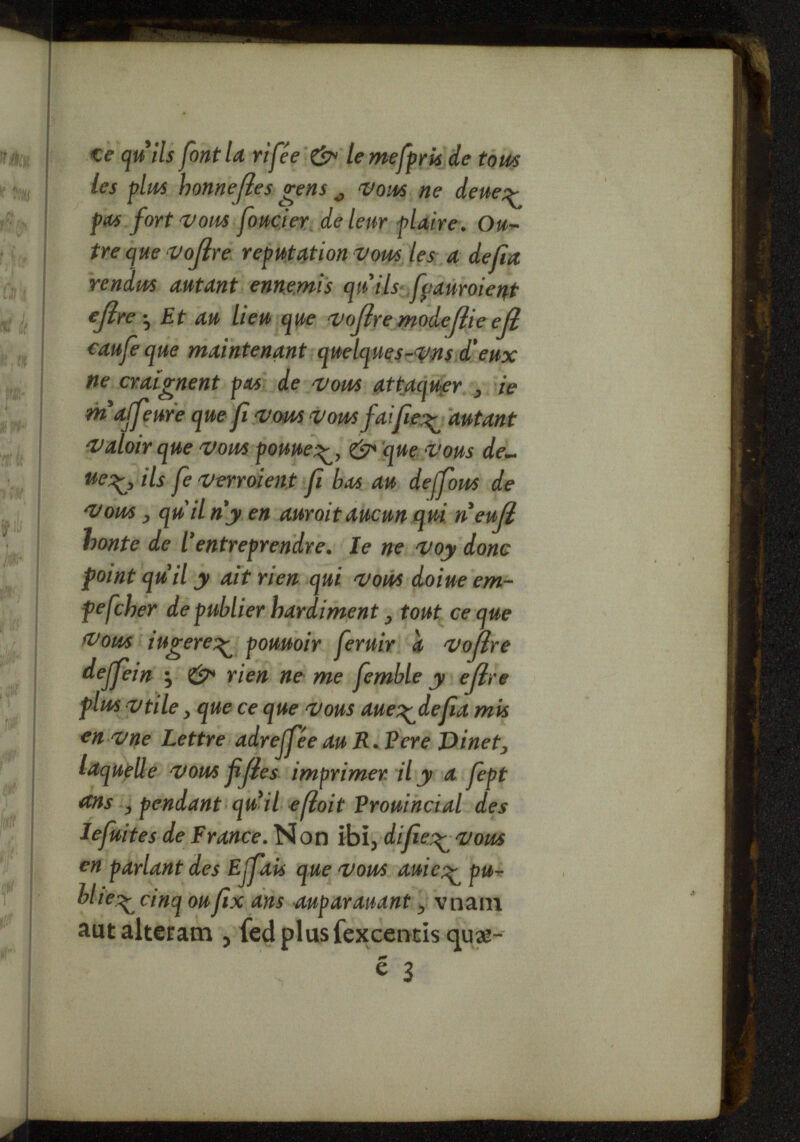 ce qu'ils ſont la riſée & le meſpris de tous
les plus honneſtes gens, vous ne deuez
pas fort vous ſoucier de leur plaire. Ou-
tre que voſtre reputation vous les a deſia
rendus autant ennemis qu'ils ſçauroient
eſtre; Et au lieu que voſtre modeſtie eſt
cauſe que maintenant quelques-vns d'eux
ne craignent pas de vous attaquer, ie
m'aſſeure que ſi vous vous faiſiez autant
valoir que vous pouuez, & que vous de-
uez, ils ſe verroient ſi bas au deſſous de
vous, qu'il n'y en auroit aucun qui n'euſt
honte de l'entreprendre. Ie ne voy donc
point qu'il y ait rien qui vous doiue em-
peſcher de publier hardiment, tout ce que
vous iugerez pouuoir ſeruir à voſtre
deſſein; & rien ne me ſemble y eſtre
plus vtile, que ce que vous auez deſia mis
en vne Lettre adreſſée au R. Pere Dinet,
laquelle vous fiſtes imprimer il y a ſept
ans, pendant qu'il eſtoit Prouincial des
Ieſuites de France. Non ibi, diſiez vous
en parlant des Eſſais que vous auiez pu-
bliez cinq ou ſix ans auparauant, vnam
aut alteram, ſed plus ſexcentis quæ-
ẽ 3